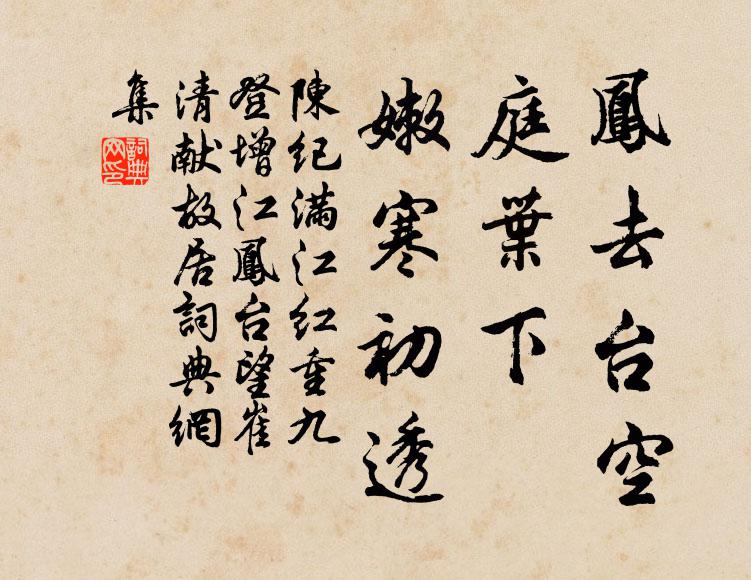 鳳去台空
庭葉下
嫩寒初透
陳紀滿江红重九
登增江鳳台望崔
清献故居詞典網
集
詞典
网印